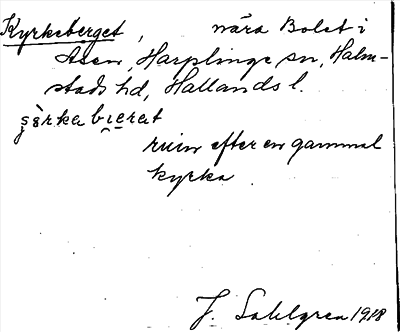 Kyrkeberget, nära Bolet i
Åsen, Harplinge sn, Halm-
stads hd, Hallands l.
şörkabi̯erat
ruin efter en gammal
kyrka
J. Sahlgren 1918